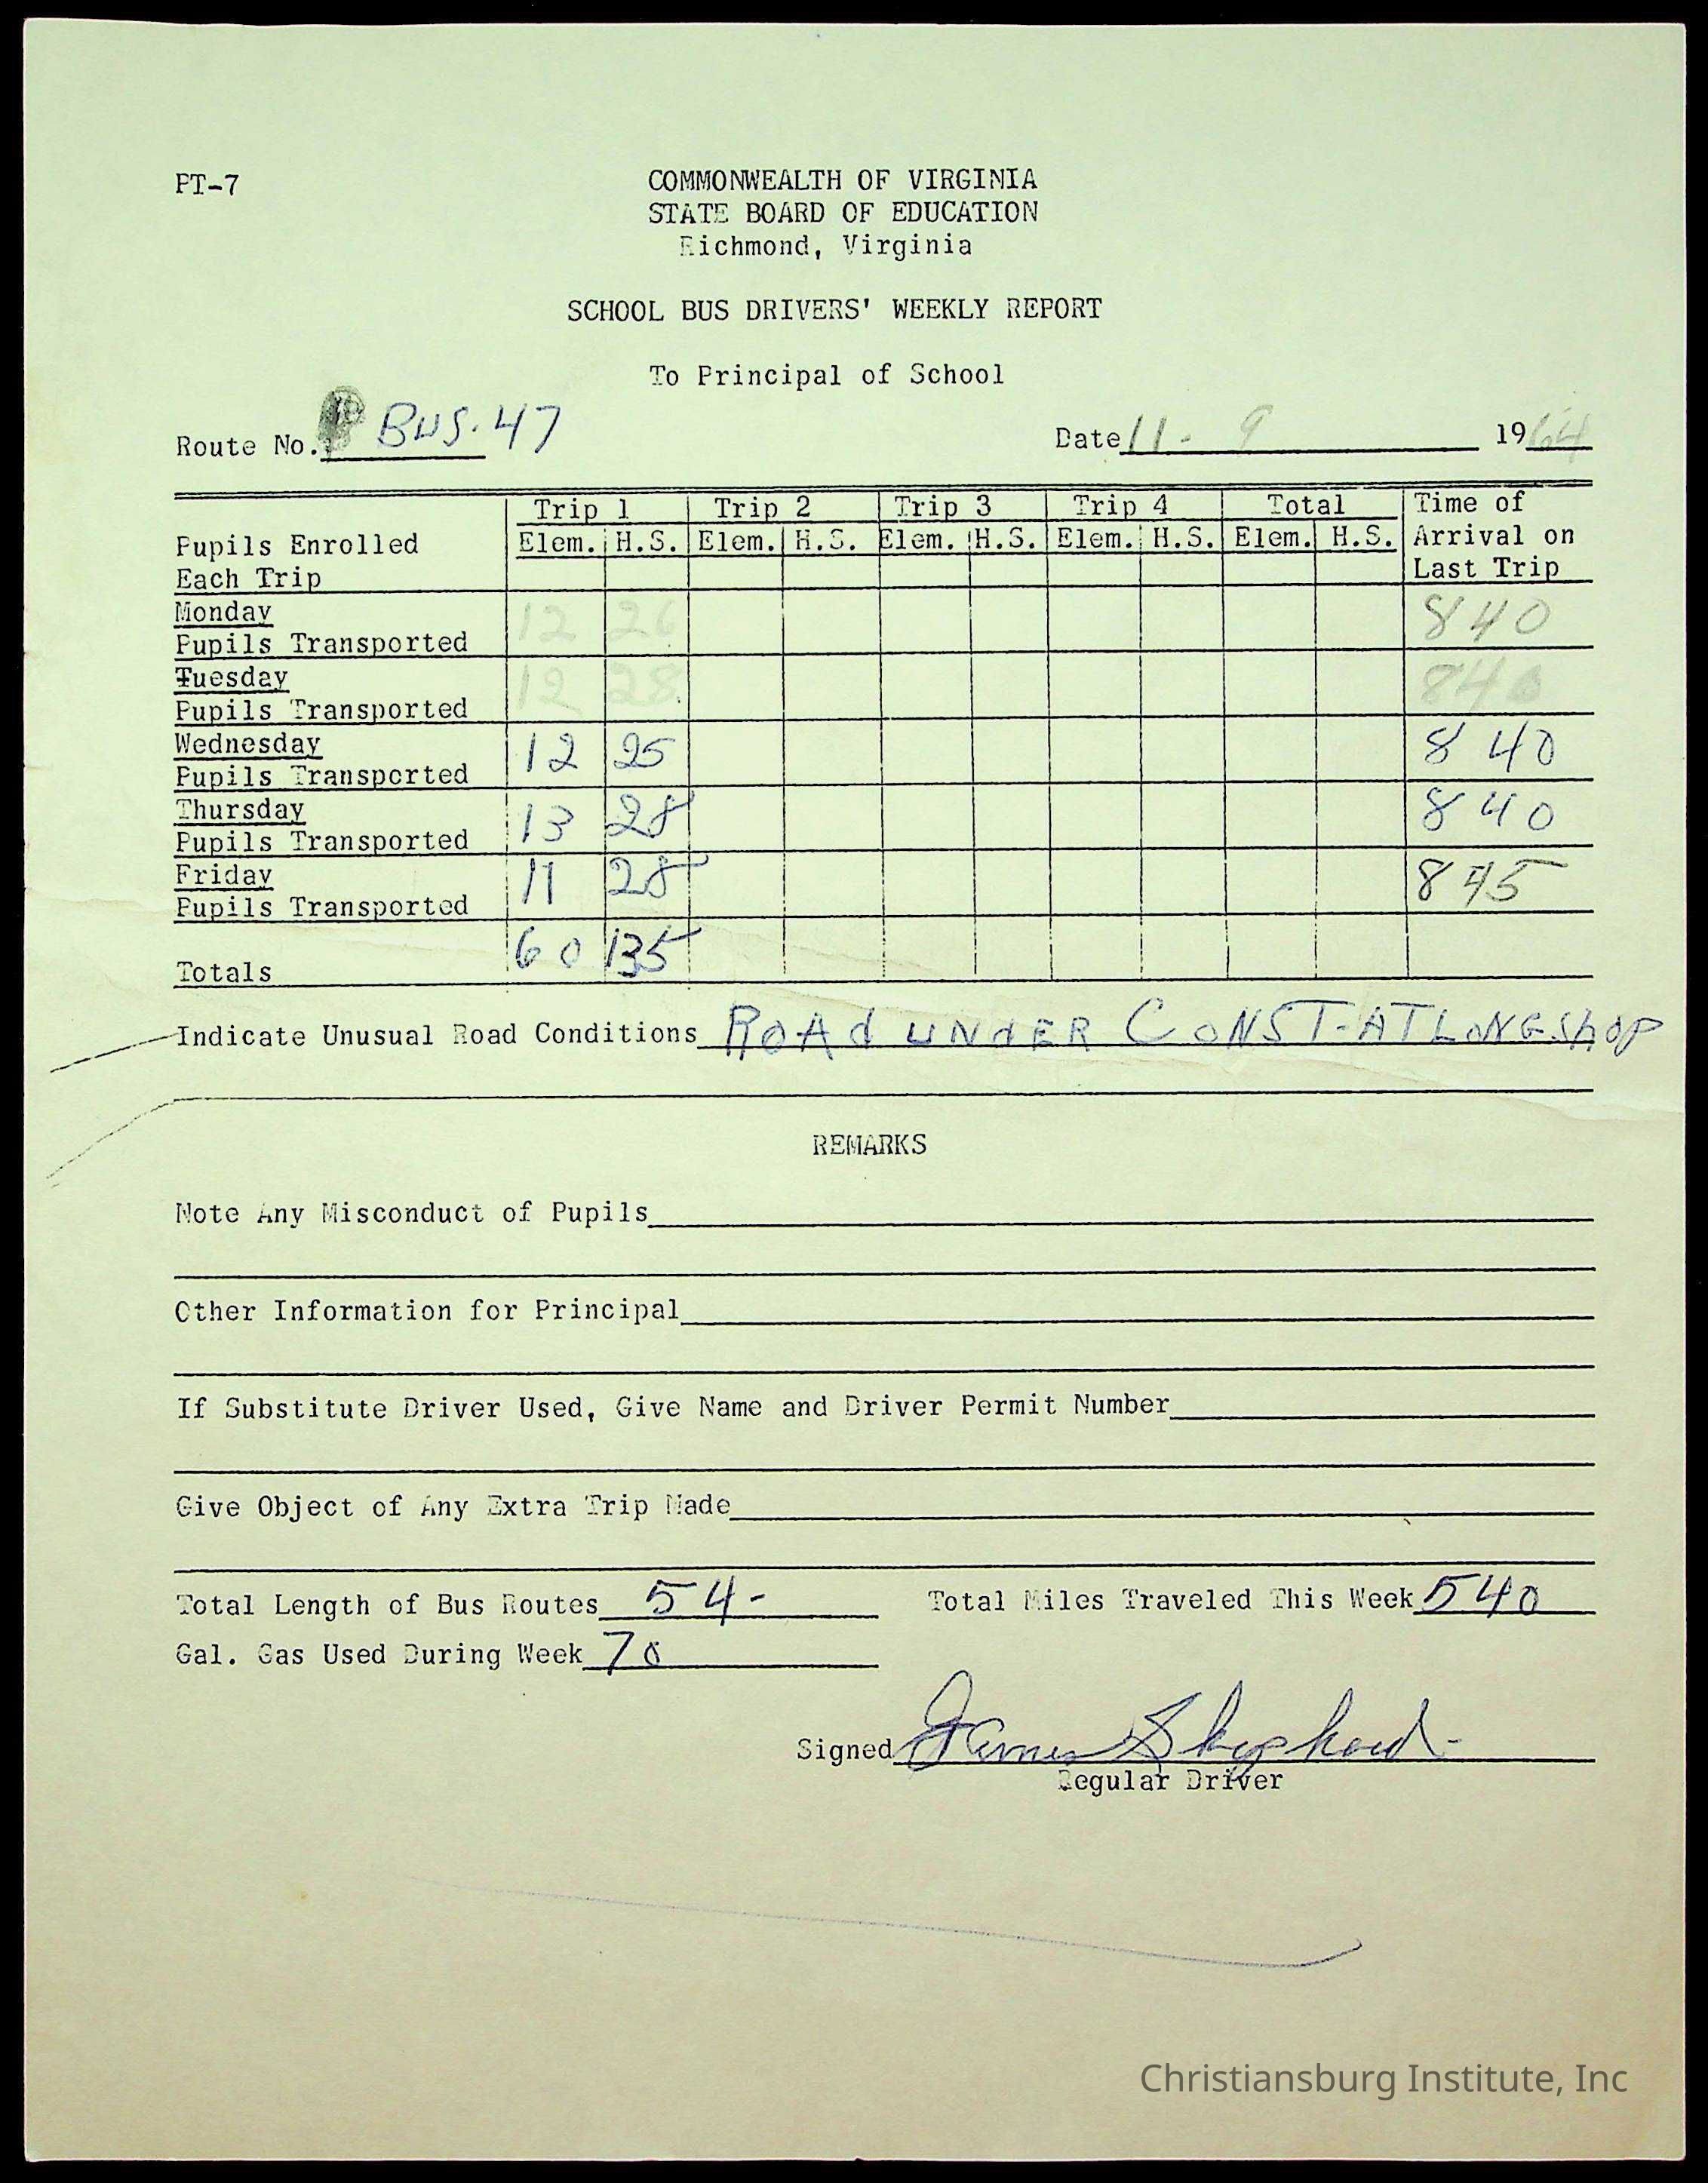 PT-7
COMMONWEALTH OF VIRGINIA
STATE BOARD OF EDUCATION
Richmond, Virginia
SCHOOL BUS DRIVERS' WEEKLY REPORT
To Principal of School
Route No. BUS. 47 Date 11 - 9 1964
Trip 1 Trip 2 Trip 3 Trip 4 Total Time of
Pupils Enrolled Elem. H.S. Elem. H.S. Elem. H.S. Elem. H.S. Elem. H.S. Arrival on
Each Trip Last Trip
Monday
Pupils Transported 12 26 840
Tuesday
Pupils Transported 12 28 840
Wednesday
Pupils Transported 12 25 8 40
Thursday
Pupils Transported 13 28 8 40
Friday
Pupils Transported 11 28 845
Totals 60 135
Indicate Unusual Road Conditions ROAd UNdER CONST-AT LONGShOP
REMARKS
Note Any Misconduct of Pupils
Other Information for Principal
If Substitute Driver Used, Give Name and Driver Permit Number
Give Object of Any Extra Trip Made
Total Length of Bus Routes 54- Total Miles Traveled This Week 540
Gal. Gas Used During Week 70
Signed James Shepherd-
Regular Driver
Christiansburg Institute, Inc